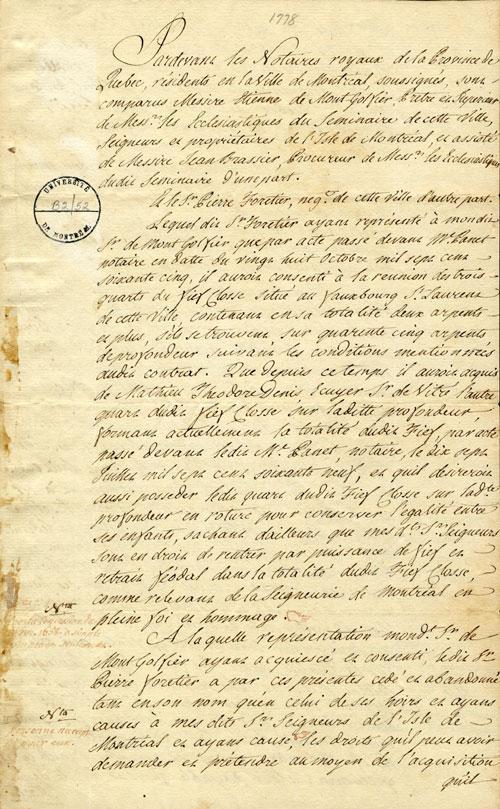 1778
Pardevant les Notaires royaux de la Province de
Quebec, résidents en la Ville de Montréal, soussignés, sont
comparus Messire Etienne de MontGolfier Prêtre et Superieur
de Mess.rs les Ecclesiastiques du Seminaire de cette Ville,
Seigneurs et propriétaires de l'Isle de Montréal, et assisté
de Messire Jean Brassier, Procureur de Mess.rs les Ecclesiastiques
dudit Seminaire d'une part.
Et le S.r Pierre Foretier, neg.t de cette Ville d'autre part.
UNIVERSITÉ
B2/52
DE MONTRÉAL
Lequel dit S.r Foretier ayant représenté à mondit
S.r de MontGolfier que par acte passé devant M.e Panet
notaire en datte du vingt huit Octobre mil sept cent
soixante cinq, il auroit consenti à la reunion des trois
quarts du fief Closse situé au fauxbourg S.t Laurent
de cette Ville contenant en sa totalité deux arpents
et plus, s'ils se trouvent sur quarente cinq arpents
de profondeur suivant les conditions mentionnées
audit contrat. Que depuis ce temps il auroit acquis
de Mathieu Theodore Denis, Ecuyer S.r de Vitré l'autre
quart dudit fief Closse sur laditte profondeur
formant actuellement la totalité dudit Fief, par acte
passé devant ledit M.e Panet notaire, le dix sept
Juillet mil sept cent soixante neuf, et qu'il desireroit
aussi posseder ledit quart dudit Fief Closse sur lad.te
profondeur en roture pour conserver l'egalité entre
ses enfants, sachant d'ailleurs que mes d.ts S.rs Seigneurs
sont en droit de rentrer par puissance de fief et
retrait féodal dans la totalité dudit Fief Closse,
comme relevant de la Seigneurie de Montréal en
pleine foi et hommage.
N.ta
A laquelle representation mond.t S.r de
MontGolfier ayant acquiescé et consenti, le dit S.r
Pierre Foretier a par ces présentes cedé et abandonné
tant en son nom qu'en celui de ses hoirs et ayans
N.ta
causes à mes dits S.rs Seigneurs de l'Isle de
Montréal et ayans cause, les droits qu'il peut avoir
demander et prétendre au moyen de l'acquisition
qu'il